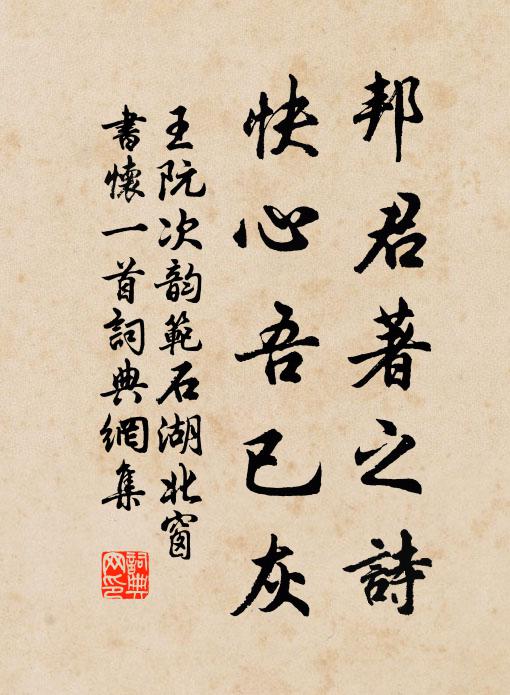 邦君著之詩
快心吾已灰
王阮次韵範石湖北窗
書懷一首詞典網集
詞典網印